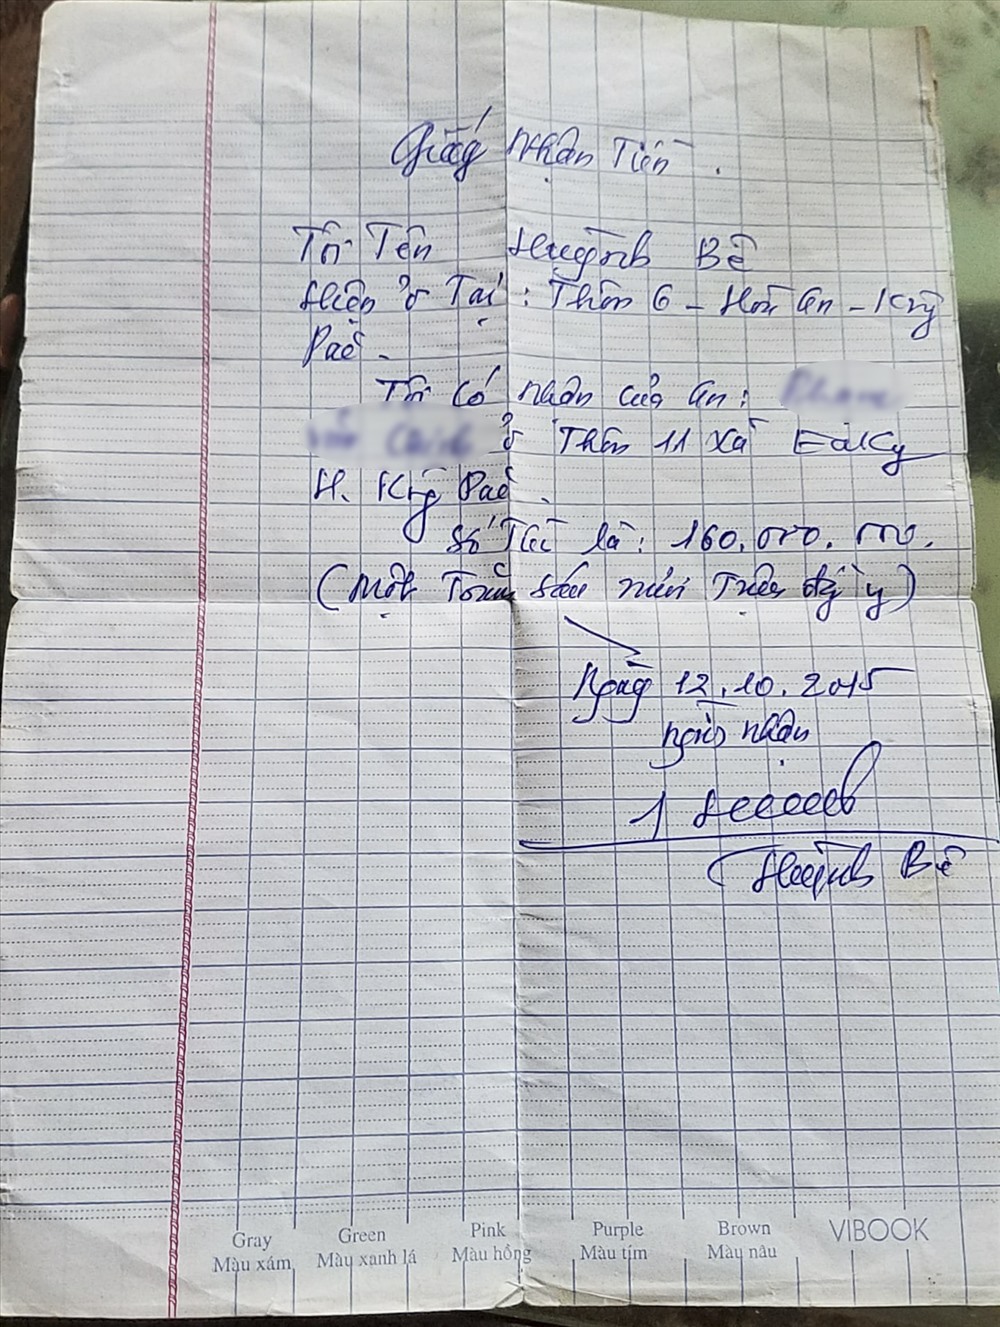 Giấy nhận Tiền.
Tôi Tên Huỳnh Bê
Hiện ở Tại: Thôn 6 - Hòa An - Krông
Pắc.
Tôi có nhận của an:
ở Thôn 11 xã EaKly
H. Krông Pắc.
Số Tiền là: 160.000.000.
(Một Trăm sáu mươi Triệu đồng y)
Ngày 12.10.2015
người nhận
Huỳnh Bê
Gray Green Pink Purple Brown VIBOOK
Màu xám Màu xanh lá Màu hồng Màu tím Màu nâu